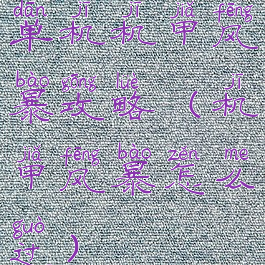 dān jī jī jiǎ fēng
单机机甲风
bào gōng lüè jī
暴攻略（机
jiǎ fēng bào zěn me
甲风暴怎么
guò
过）